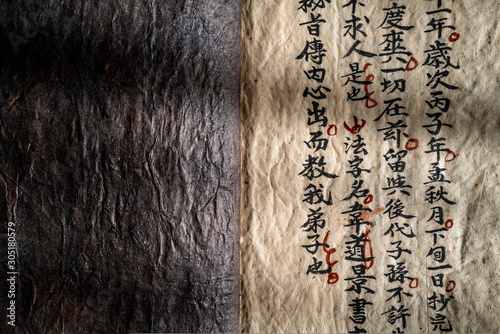 年歲次丙子年孟秋月下旬一日抄完
度一切在留與後代子孫不許
不求人是也法字名韋道景書
首傳內心出而教我弟子也
Adobe Stock | #305180579